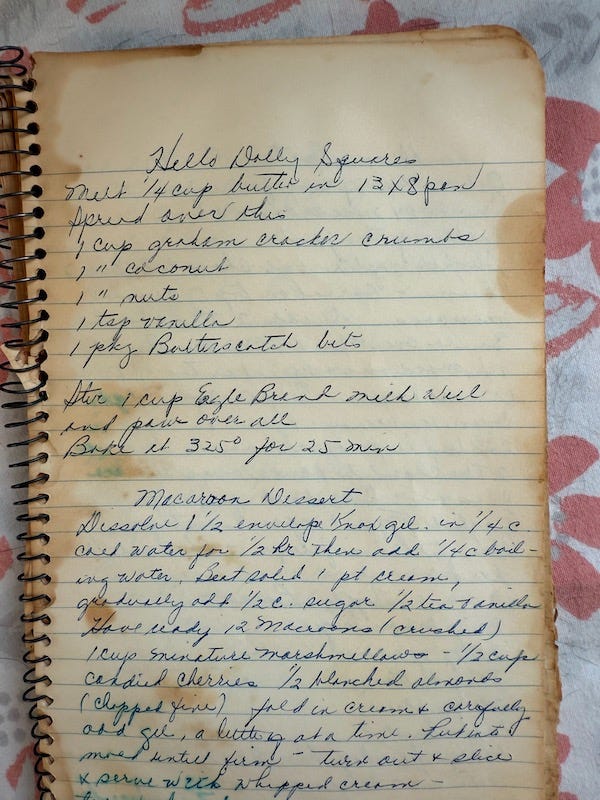 Hello Dolly Squares
Melt 1/4 cup butter in 13 X 8 pan
Spread over this
1 cup graham cracker crumbs
1 " coconut
1 " nuts
1 tsp vanilla
1 pkg Butterscotch bits
Stir 1 cup Eagle Brand milk well
and pour over all
Bake at 325° for 25 min
Macaroon Dessert
Dissolve 1 1/2 envelope Knox gel. in 1/4 c
cold water for 1/2 hr. Then add 1/4 c boil-
ing water. Beat solid 1 pt cream,
gradually add 1/2 c. sugar 1/2 tea vanilla
Have ready 12 Macroons (crushed)
1 cup minature marshmellows - 1/2 cup
candied cherries 1/2 blanched almonds
(chopped fine) fold in cream & carefully
add gel, a little at a time. Put into
mold until firm - turn out & slice
& serve with whipped cream -